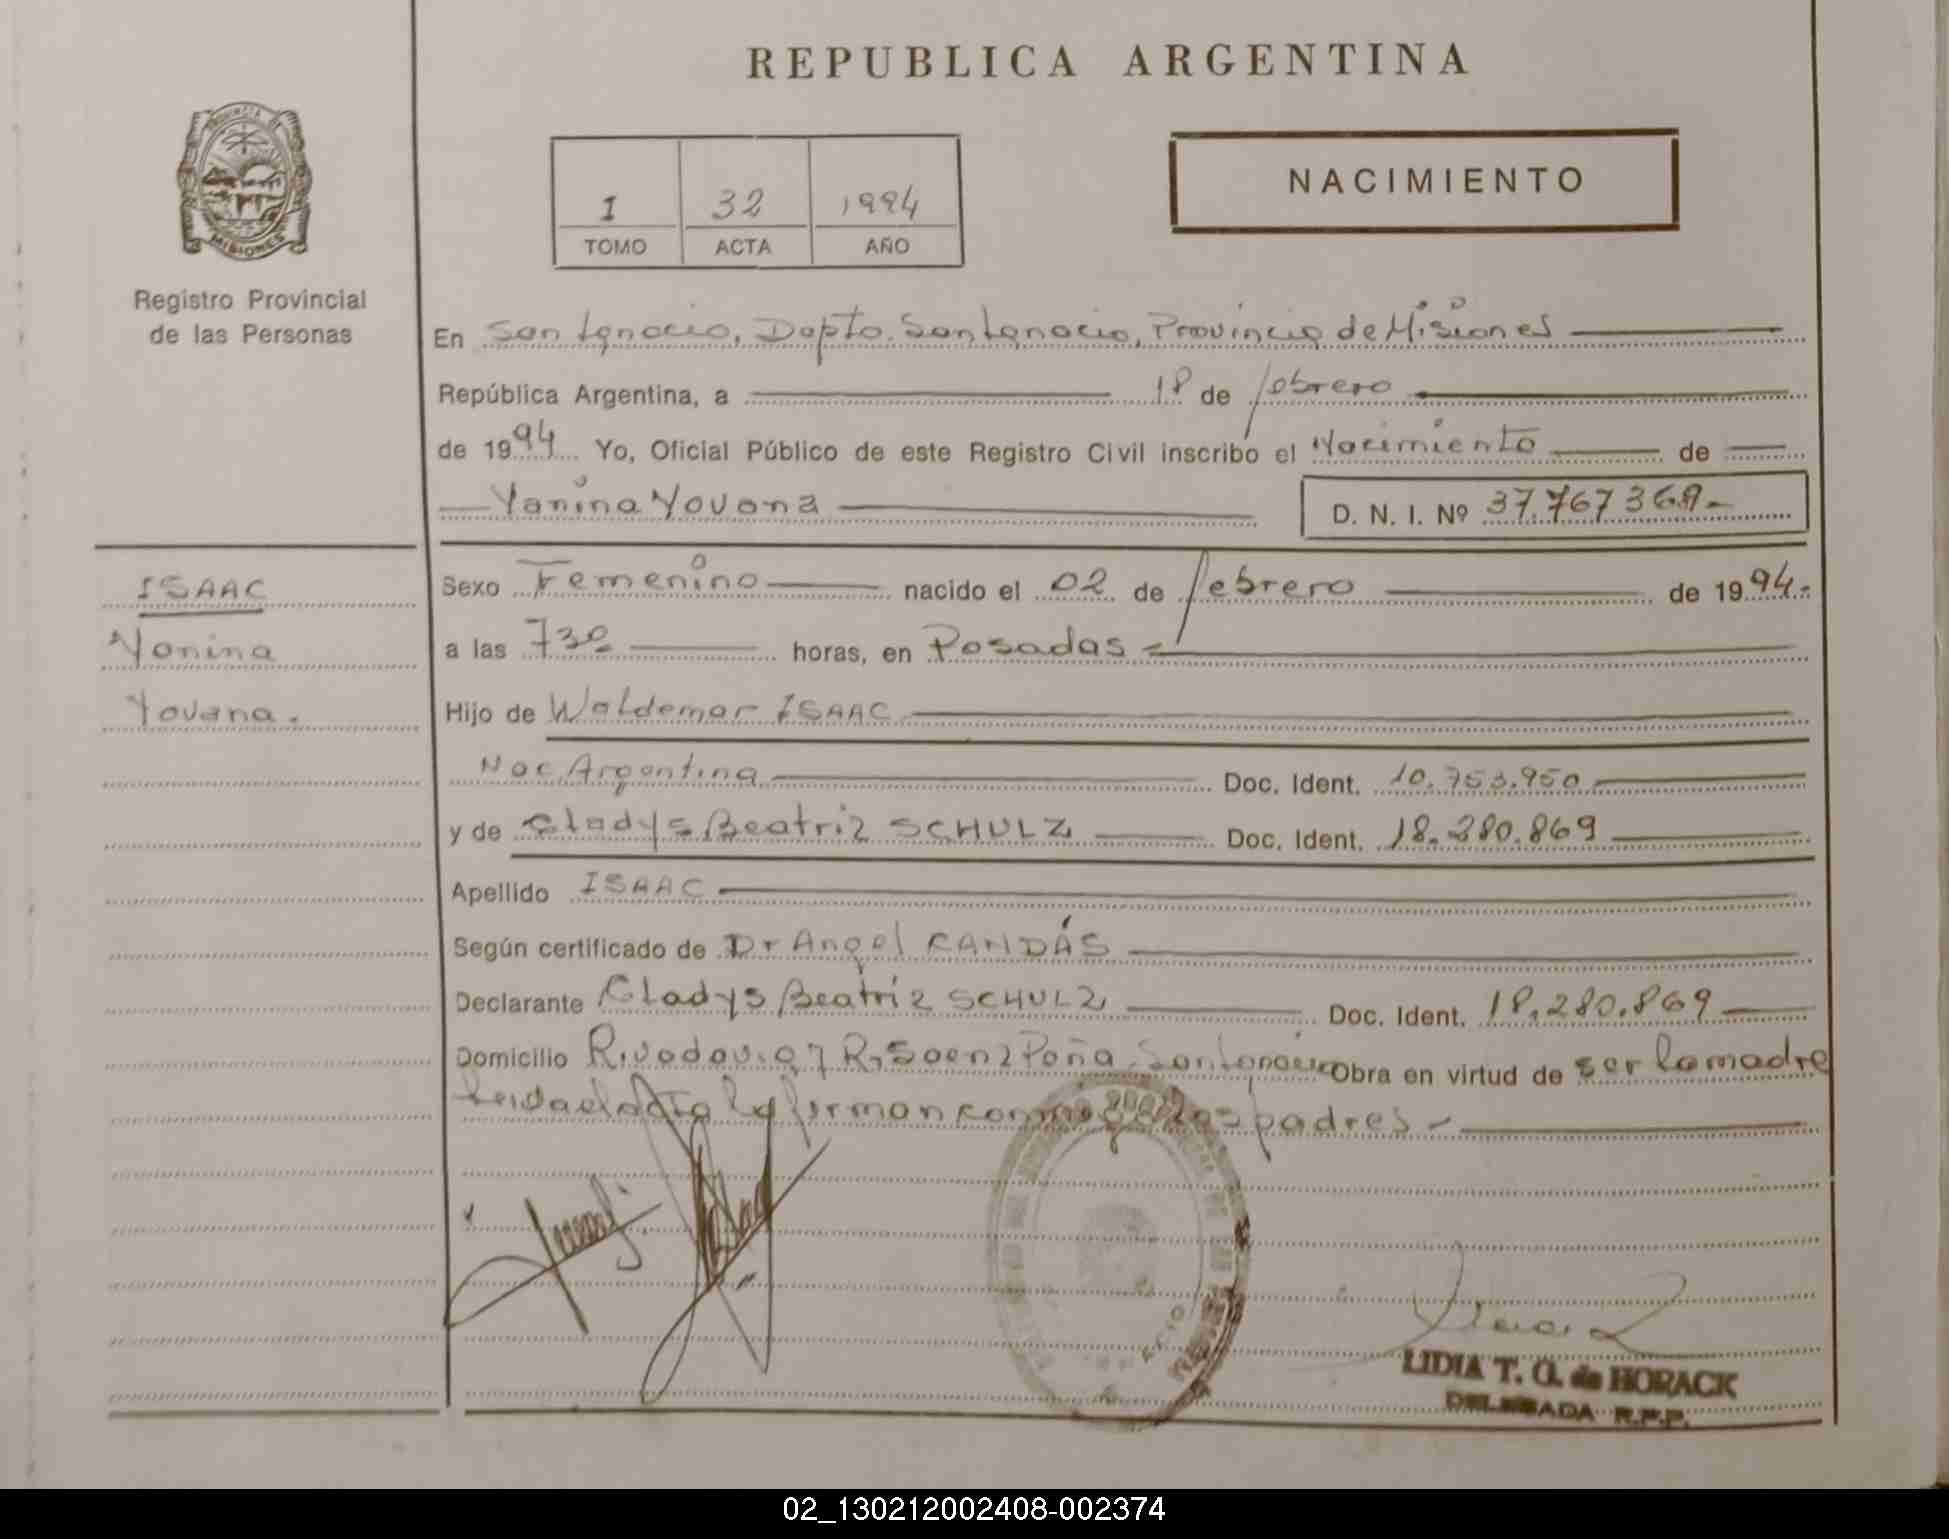 REPUBLICA ARGENTINA
PROVINCIA DE
MISIONES
Registro Provincial
de las Personas
I 32 1994
TOMO ACTA AÑO
NACIMIENTO
En San Ignacio, Dapto. San Ignacio, Provincia de Misiones
República Argentina, a 18 de febrero
de 1994 Yo, Oficial Público de este Registro Civil inscribo el Nacimiento de
Yanina Yovana D. N. I. Nº 37.767.369-
ISAAC
Yanina
Yovana.
Sexo Femenino nacido el 02 de febrero de 1994.-
a las 730 horas, en Posadas
Hijo de Waldemar ISAAC
Nac. Argentina Doc. Ident. 10.753.950
y de Gladys Beatriz SCHULZ Doc. Ident. 18.280.869
Apellido ISAAC
Según certificado de Dr Angel
Declarante Gladys Beatriz SCHULZ Doc. Ident. 18.280.869
Domicilio Rivadavia y R. Saenz Peña San Ignacio Obra en virtud de ser la madre
Leida el acta la firman conmigo los padres -
LIDIA T. O. de HORACK
DELEGADA R.P.P.
02_130212002408-002374